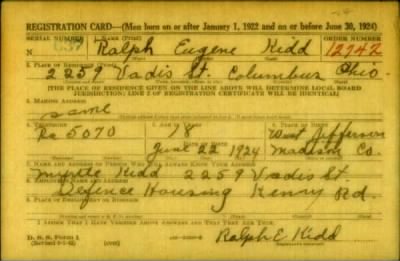 REGISTRATION CARD—(Men born on or after January 1, 1922 and on or before June 30, 1924)
SERIAL NUMBER 1. NAME (Print) ORDER NUMBER
N Ralph Eugene Kidd 12942
2. PLACE OF RESIDENCE (Print)
2259 Vadis St. Columbus Ohio
[THE PLACE OF RESIDENCE GIVEN ON THE LINE ABOVE WILL DETERMINE LOCAL BOARD
JURISDICTION; LINE 2 OF REGISTRATION CERTIFICATE WILL BE IDENTICAL]
3. MAILING ADDRESS
same
4. TELEPHONE 5. AGE IN YEARS 6. PLACE OF BIRTH
Ra 5070 18 West Jefferson
June 22 1924 Madison Co.
7. NAME AND ADDRESS OF PERSON WHO WILL ALWAYS KNOW YOUR ADDRESS
Myrtle Kidd 2259 Vadis St.
8. EMPLOYER'S NAME AND ADDRESS
Defence Housing Kenny Rd.
9. PLACE OF EMPLOYMENT OR BUSINESS
I AFFIRM THAT I HAVE VERIFIED ABOVE ANSWERS AND THAT THEY ARE TRUE.
D. S. S. Form 1
Ralph E Kidd